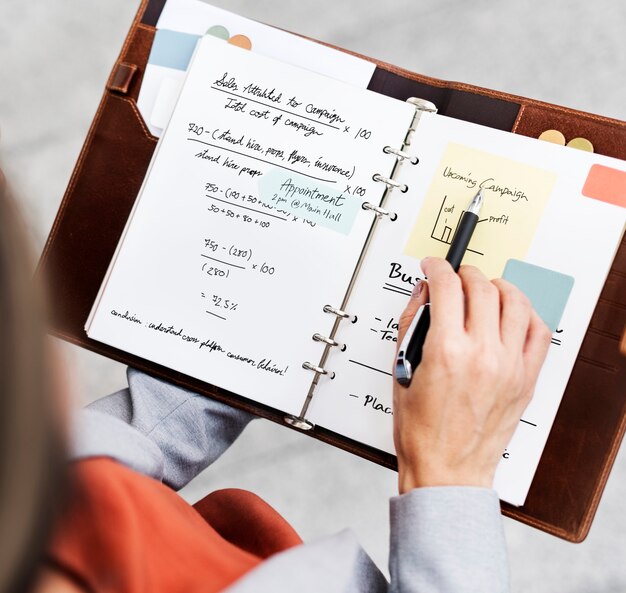 Sales Attributed to Campaign
Total cost of campaign × 100
720 - (stand hire, props, flyers, insurance)
stand hire props × 100
Appointment
2 pm @ Main Hall
750 - (100 + 50 +
50 + 50 + 80 + 100
750 - (280)
(280) × 100
= 72.5%
conclusion : understand cross platform consumer behavior!
Upcoming Campaign
cost
profit
Busi
- Place